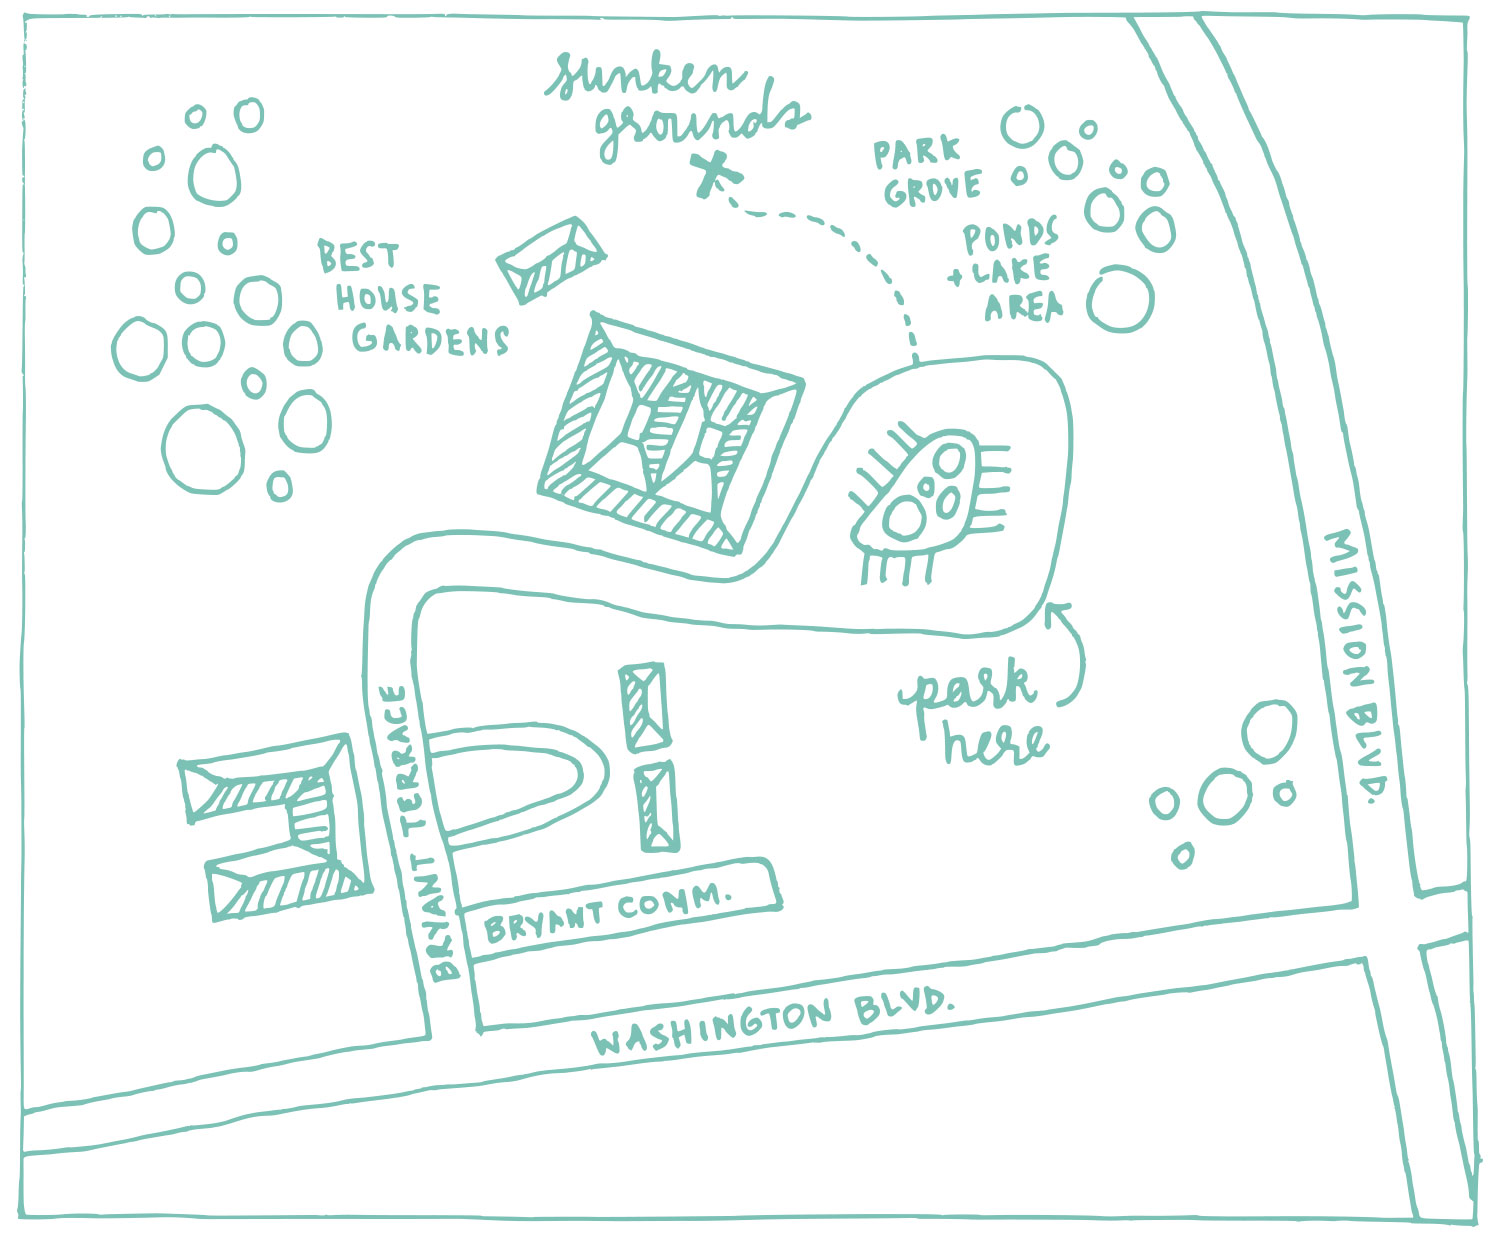 sunken
grounds
PARK
GROVE
PONDS
+ LAKE
AREA
BEST
HOUSE
GARDENS
MISSION BLVD.
park
here
BRYANT TERRACE
BRYANT COMM.
WASHINGTON BLVD.